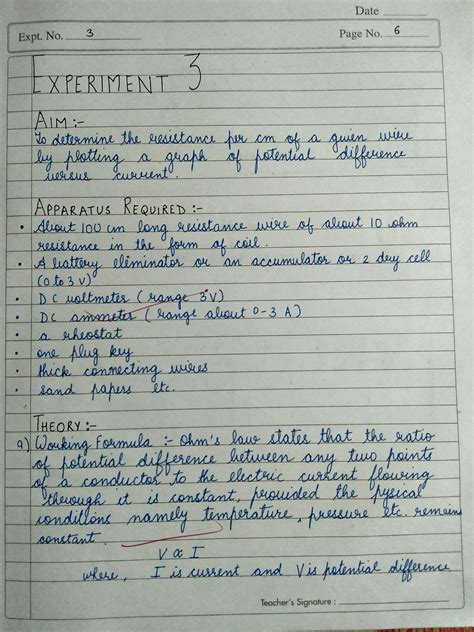 Date
Expt. No. 3
Page No. 6
EXPERIMENT 3
AIM :-
To determine the resistance per cm of a given wire
by plotting a graph of potential difference
versus current.
APPARATUS REQUIRED :-
• About 100 cm long resistance wire of about 10 ohm
resistance in the form of coil.
• A battery eliminator or an accumulator or 2 dry cell
(0 to 3 V)
• DC voltmeter (range 3V)
• DC ammeter (range about 0-3 A)
• a rheostat
• one plug key
• thick connecting wires
• sand papers etc.
THEORY :-
a) Working Formula :- Ohm's law states that the ratio
of potential difference between any two points
of a conductor to the electric current flowing
through it is constant, provided the pysical
conditions namely temperature, pressure etc. remains
constant.
V ∝ I
where, I is current and V is potential difference
Teacher's Signature :